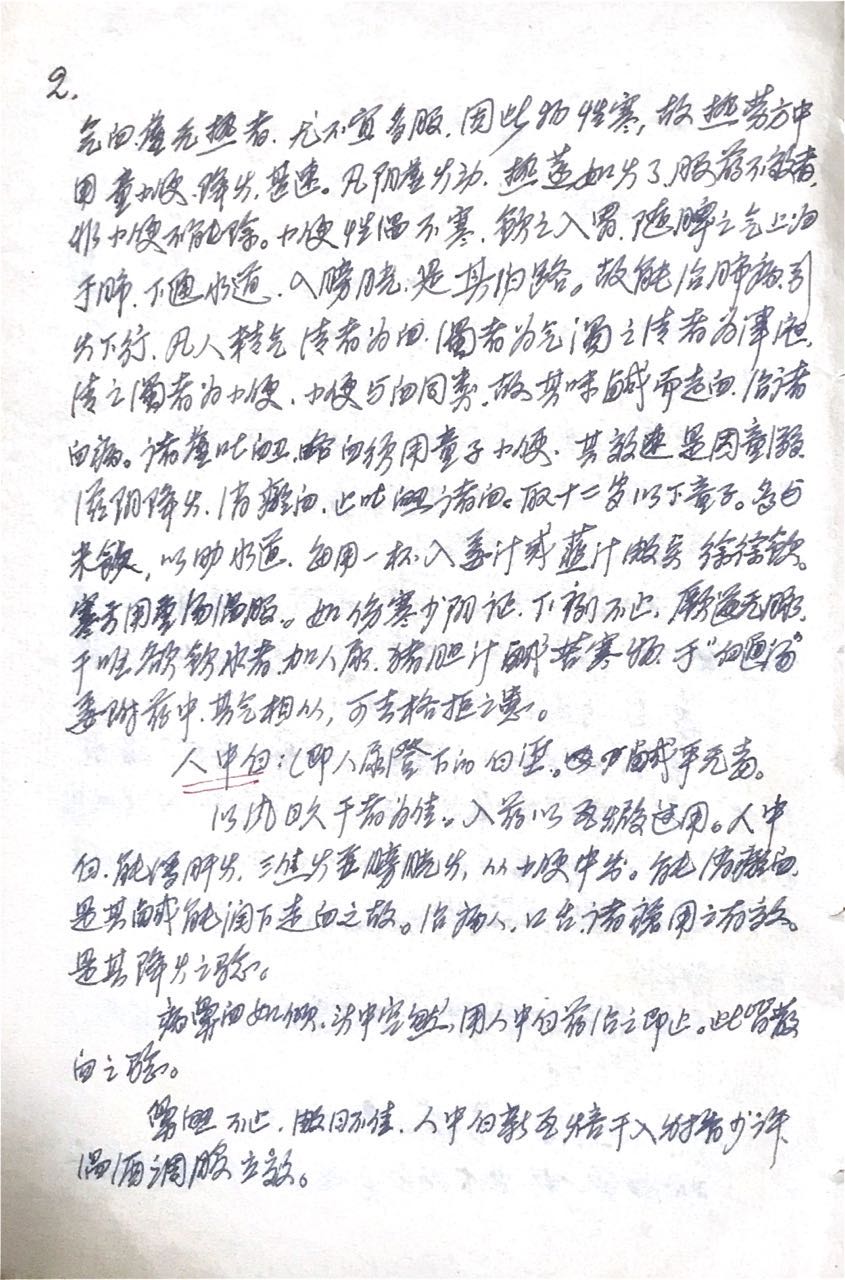 2.
气血虚无热者、尤不宜多服、因此物性寒，故热劳方中
用童便、降火甚速。凡阴虚火动、热蒸如火、服药不效者，
非小便不能除。小便性温不寒、饮之入胃、随脾之气上归
于肺、下通水道、入膀胱、是其旧路。故能治肺病、引
火下行、凡人精气清者为血、浊者为气、浊之清者为津液、
清之浊者为小便、小便与血同类、故其味咸而走血、治诸
血病。诸虚吐衄、咯血须用童子小便、其效速是因童溺
滋阴降火、消瘀血、止吐衄诸血。取十二岁以下童子。多与
米饮，以助水道、每用一杯、入姜汁或韭汁徐徐饮。
寒天用重汤温服。如伤寒少阴证、下利不止、厥逆无脉、
干呕欲饮水者、加人尿、猪胆汁咸苦寒物、于"白通汤"
姜附药中、其气相从，可去格拒之患。
人中白：（即人尿澄下的白垽。咸平无毒。
以风日久干者为佳。入药以瓦火煅过用。人中
白、能泻肝火、三焦火至膀胱火，从小便中出。能消瘀血、
是其咸能润下走血之故。治病人、口舌诸疮用之有效。
是其降火之验。
病鼻血如倾、诊中空然，用人中白药治之即止。此皆散
血之验。
鼻衄不止、数日不佳、人中白新瓦焙干入麝香少许、
温酒调服立效。